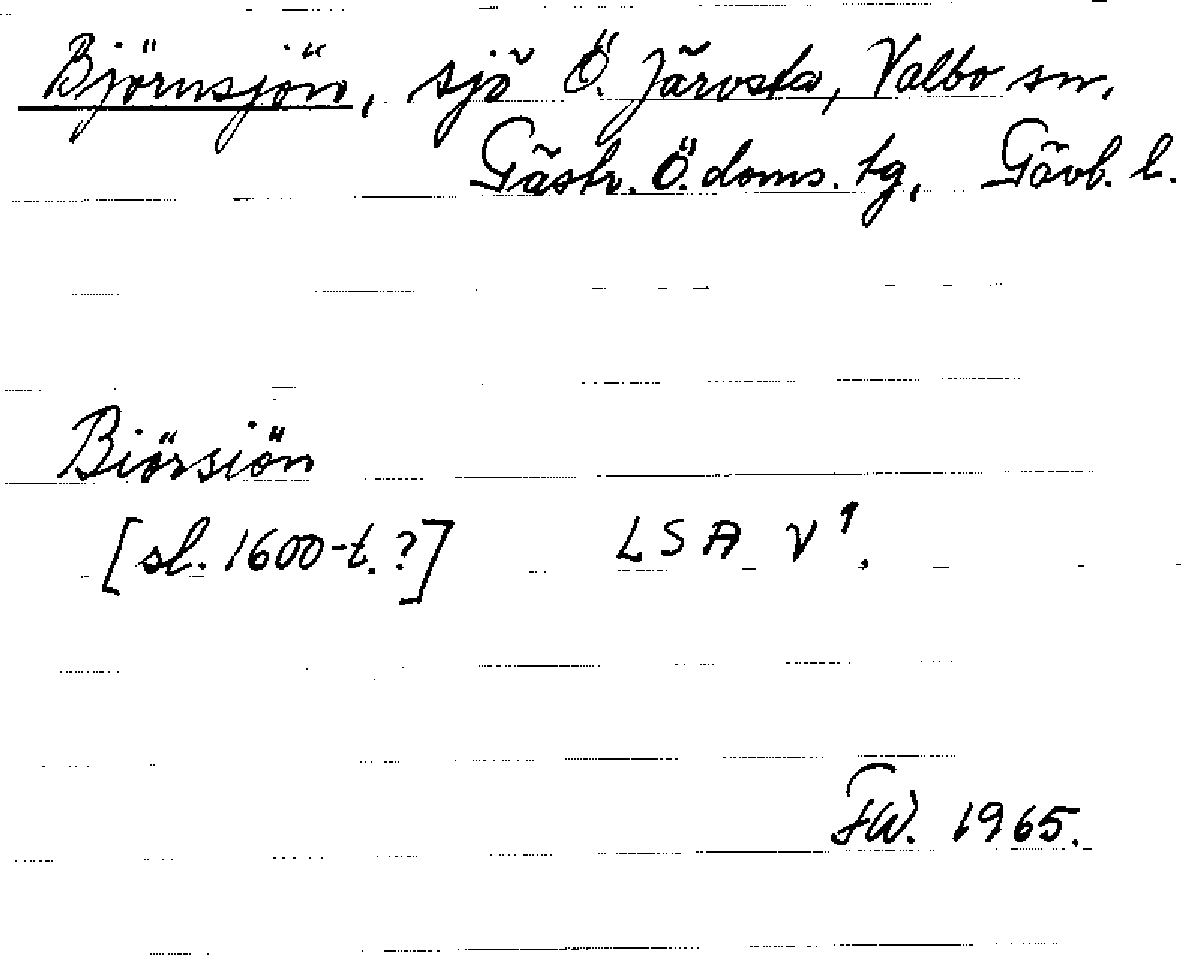 Björnsjön, sjö Ö. Järvsta, Valbo sn,
Gästr. Ö. doms. tg, Gävl. l.
Biörsiön
[sl. 1600-t.?] LSA V¹.
FW. 1965.